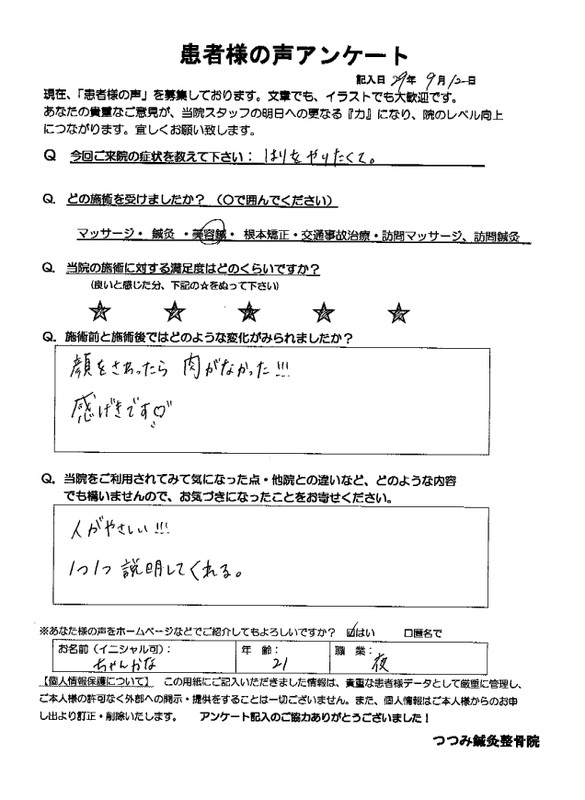 患者様の声アンケート
記入日 29年 9月12日
現在、「患者様の声」を募集しております。文章でも、イラストでも大歓迎です。
あなたの貴重なご意見が、当院スタッフの明日への更なる『力』になり、院のレベル向上
につながります。宜しくお願い致します。
Q 今回ご来院の症状を教えて下さい: はりをやりたくて。
Q. どの施術を受けましたか？（〇で囲んでください）
マッサージ・ 鍼灸 ・美容鍼・ 根本矯正・交通事故治療・訪問マッサージ、訪問鍼灸
Q. 当院の施術に対する満足度はどのくらいですか？
（良いと感じた分、下記の☆をぬって下さい）
★ ★ ★ ★ ★
Q. 施術前と施術後ではどのような変化がみられましたか？
顔をさわったら 肉がなかった!!!
感げきです♡
Q. 当院をご利用されてみて気になった点・他院との違いなど、どのような内容
でも構いませんので、お気づきになったことをお寄せください。
人がやさしい!!!
1つ1つ 説明してくれる。
※あなた様の声をホームページなどでご紹介してもよろしいですか？ ☑はい □匿名で
お名前（イニシャル可）: 年 齢: 職 業:
ちゃんかな 21 夜
【個人情報保護について】 この用紙にご記入いただきました情報は、貴重な患者様データとして厳重に管理し、
ご本人様の許可なく外部への開示・提供をすることは一切ございません。また、個人情報はご本人様からのお申
し出より訂正・削除いたします。 アンケート記入のご協力ありがとうございました！
つつみ鍼灸整骨院